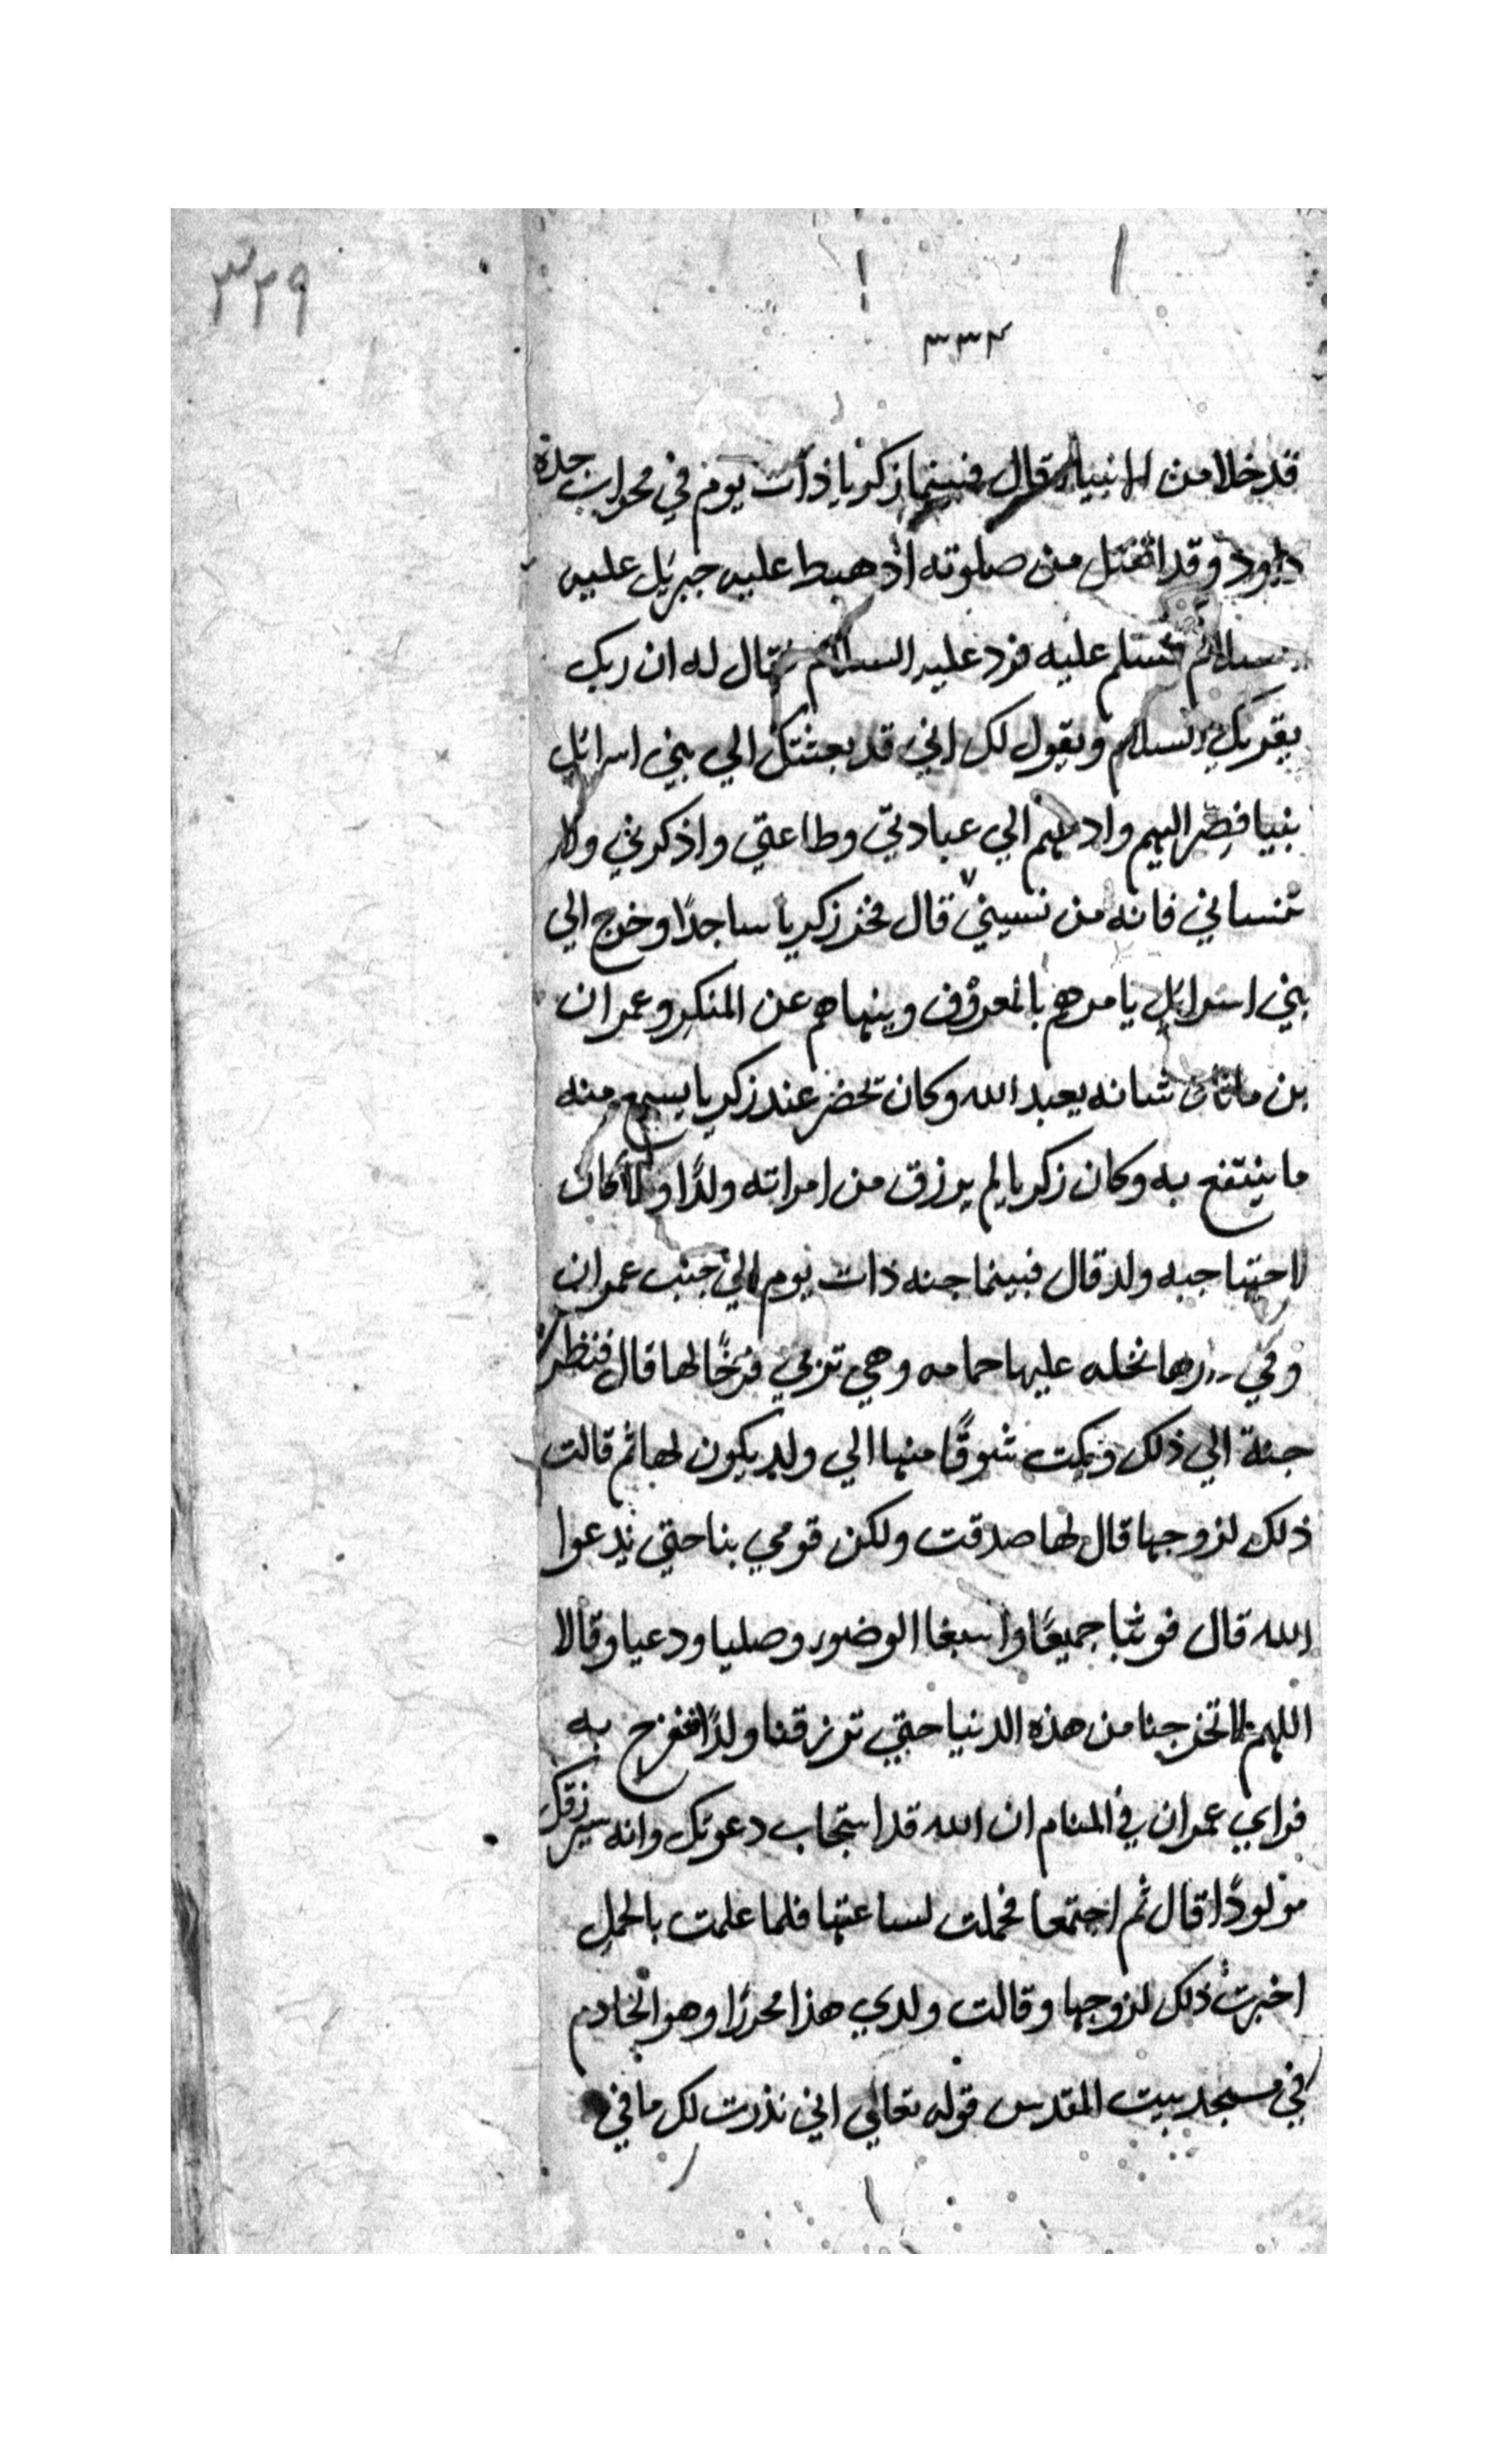 ٣٢٩
٣٣٢
قد خلا من الانبياء قال فبينما زكريا ذات يوم في محراب جده
داود وقد انفتل من صلوته اذ هبط عليه جبريل عليه
السلام فسلم عليه فرد عليه السلام فقال له ان ربك
يقريك السلام ويقول لك اني قد بعثتك الي بني اسرايل
نبيا فصر اليهم وادعهم الي عبادتي وطاعتي واذكرني ولا
تنساني فانه من نسيني قال فخر زكريا ساجدًا وخرج الي
بني اسرايل يامرهم بالمعروف وينهاهم عن المنكر وعمران
بن ماثان شانه يعبد الله وكان تحضر عند زكريا يسمع منه
ما ينتفع به وكان زكريا لم يرزق من امراته ولدًا ولا كان
لاحتها حبه ولد قال فبينما جنه ذات يوم الي جنب عمران
وفي دارها نخله عليها حمامه وهي تربي فرخًا لها قال فنظرة
جنة الي ذلك وبكت شوقًا منها الي ولد يكون لها ثم قالت
ذلك لزوجها قال لها صدقت ولكن قومي بنا حتي ندعوا
الله قال فوثبا جميعًا واسبغا الوضور وصليا ودعيا وقالا
اللهم لا تخرجنا من هذه الدنيا حتي ترزقنا ولدًا نفرح به
فراي عمران في المنام ان الله قد استجاب دعوتك وانه سيرزقك
مولودًا قال ثم اجتمعا فحملت لساعتها فلما علمت بالحمل
اخبرت ذلك لزوجها وقالت ولدي هذا محررًا وهو الخادم
في مسجد بيت المقدس قوله تعالي اني نذرت لك ما في